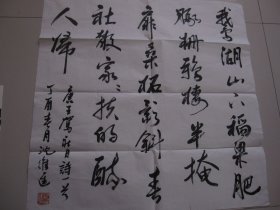 鵝湖山下稻粱肥
豚柵鷄棲半掩
扉桑柘影斜春
社散家々扶得醉
人歸
唐王駕詩一首
丁酉春月沈維